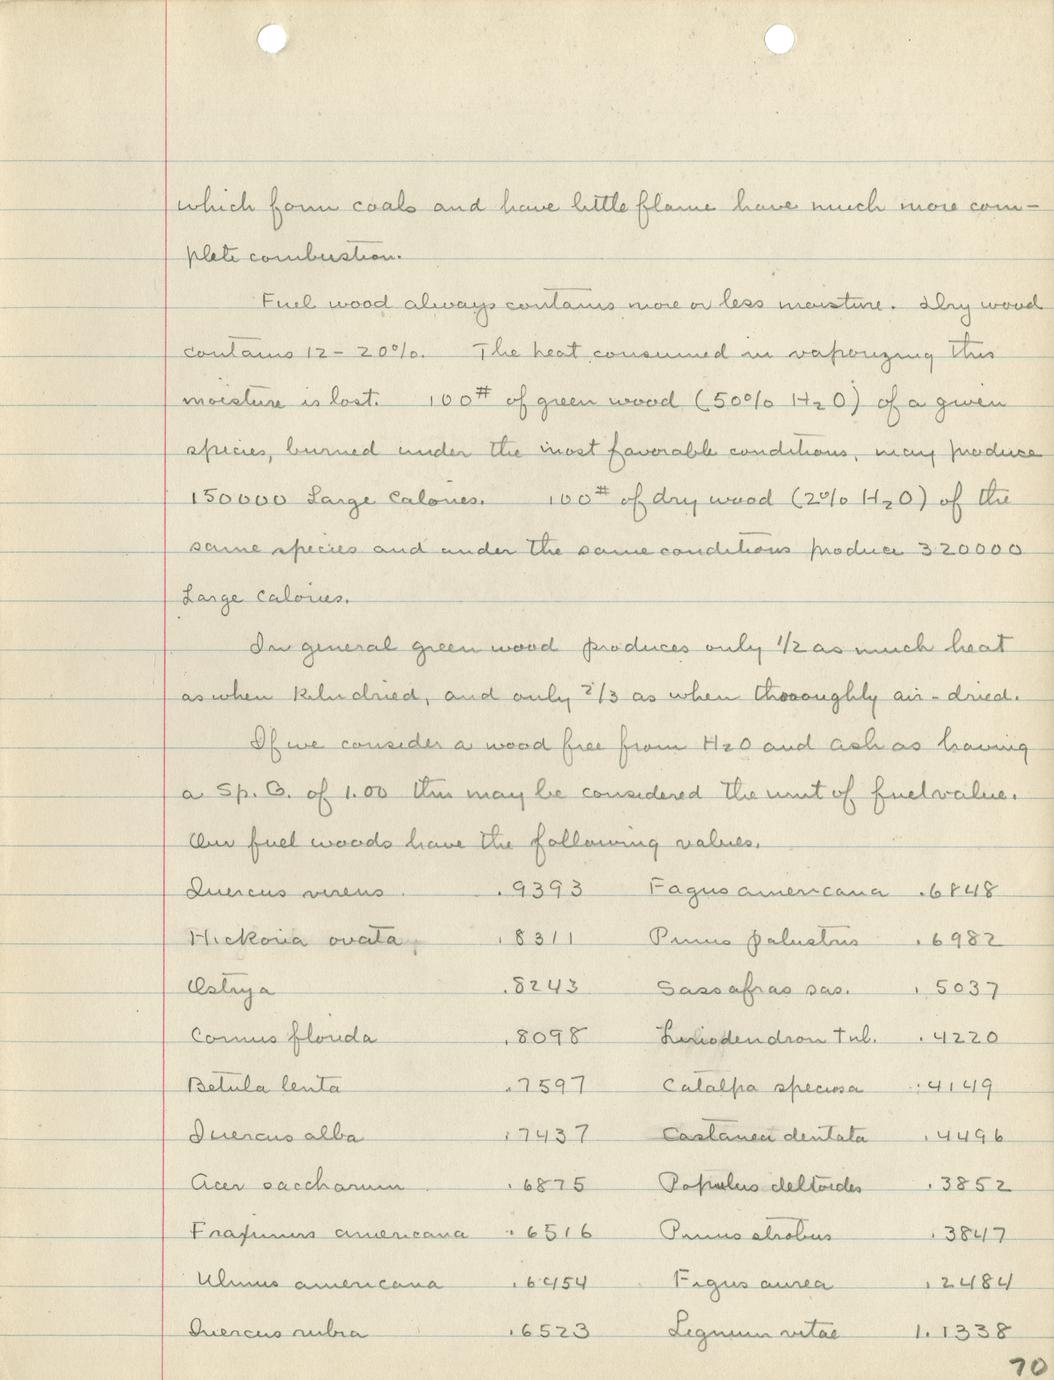 which form coals and have little flame have much more com-
plete combustion.
Fuel wood always contains more or less moisture. Dry wood
contains 12 - 20%. The heat consumed in vaporizing this
moisture is lost. 100# of green wood (50% H2O) of a given
species, burned under the most favorable conditions, may produce
150000 Large Calories. 100# of dry wood (2% H2O) of the
same species and under the same conditions produce 320000
Large Calories.
In general green wood produces only 1/2 as much heat
as when kiln dried, and only 2/3 as when thoroughly air-dried.
If we consider a wood free from H2O and ash as having
a Sp. G. of 1.00 this may be considered the unit of fuel value.
Our fuel woods have the following values.
Quercus virens .9393 Fagus americana .6848
Hickoria ovata .8311 Pinus palustris .6982
Ostrya .8243 Sassafras sas. .5037
Cornus florida .8098 Liriodendron tul. .4220
Betula lenta .7597 Catalpa speciosa .4149
Quercus alba .7437 Castanea dentata .4496
Acer saccharum .6875 Populus deltoides .3852
Fraxinus americana .6516 Pinus strobus .3847
Ulmus americana .6454 Figus aurea .2484
Quercus rubra .6523 Lignum vitae 1.1338
70